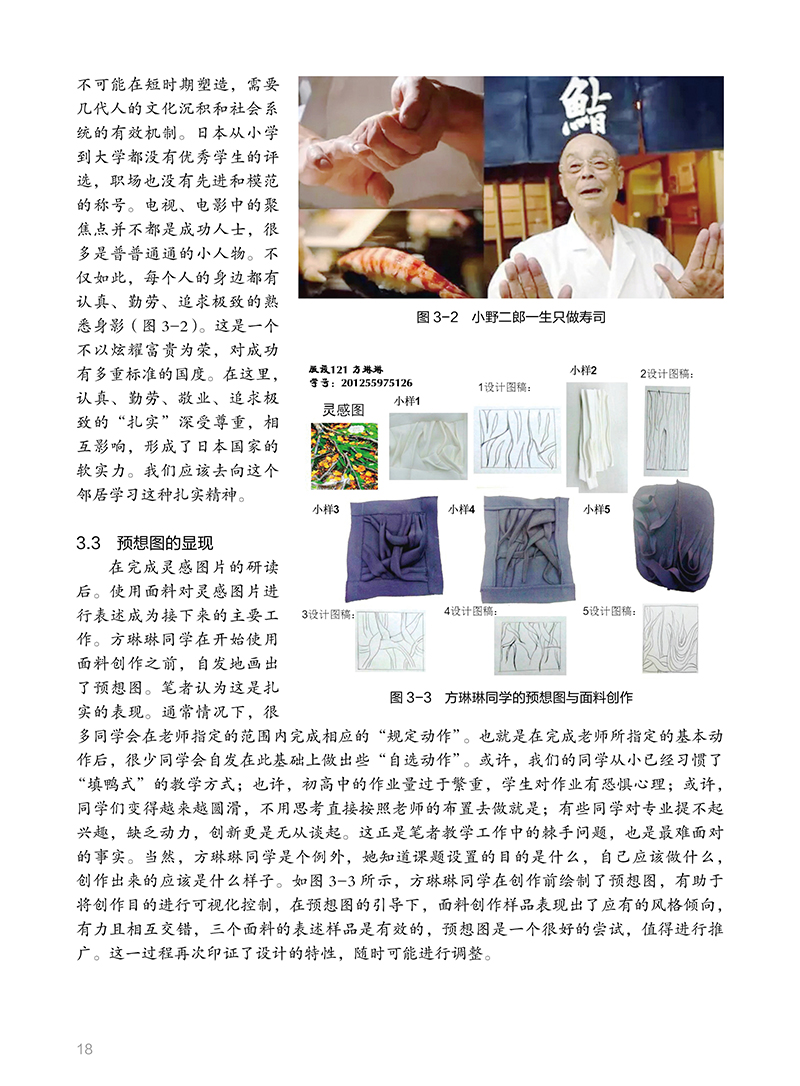 不可能在短时期塑造，需要
几代人的文化沉积和社会系
统的有效机制。日本从小学
到大学都没有优秀学生的评
选，职场也没有先进和模范
的称号。电视、电影中的聚
焦点并不都是成功人士，很
多是普普通通的小人物。不
仅如此，每个人的身边都有
认真、勤劳、追求极致的熟
悉身影（图 3-2）。这是一个
不以炫耀富贵为荣，对成功
有多重标准的国度。在这里，
认真、勤劳、敬业、追求极
致的“扎实”深受尊重，相
互影响，形成了日本国家的
软实力。我们应该去向这个
邻居学习这种扎实精神。
鮨
图 3-2 小野二郎一生只做寿司
服装121 方琳琳
学号：201255975126
灵感图
小样1
1设计图稿：
小样2
2设计图稿：
小样3
小样4
小样5
3设计图稿：
4设计图稿：
5设计图稿：
图 3-3 方琳琳同学的预想图与面料创作
3.3 预想图的显现
在完成灵感图片的研读
后。使用面料对灵感图片进
行表述成为接下来的主要工
作。方琳琳同学在开始使用
面料创作之前，自发地画出
了预想图。笔者认为这是扎
实的表现。通常情况下，很
多同学会在老师指定的范围内完成相应的“规定动作”。也就是在完成老师所指定的基本动
作后，很少同学会自发在此基础上做出些“自选动作”。或许，我们的同学从小已经习惯了
“填鸭式”的教学方式；也许，初高中的作业量过于繁重，学生对作业有恐惧心理；或许，
同学们变得越来越圆滑，不用思考直接按照老师的布置去做就是；有些同学对专业提不起
兴趣，缺乏动力，创新更是无从谈起。这正是笔者教学工作中的棘手问题，也是最难面对
的事实。当然，方琳琳同学是个例外，她知道课题设置的目的是什么，自己应该做什么，
创作出来的应该是什么样子。如图 3-3 所示，方琳琳同学在创作前绘制了预想图，有助于
将创作目的进行可视化控制，在预想图的引导下，面料创作样品表现出了应有的风格倾向，
有力且相互交错，三个面料的表述样品是有效的，预想图是一个很好的尝试，值得进行推
广。这一过程再次印证了设计的特性，随时可能进行调整。
18